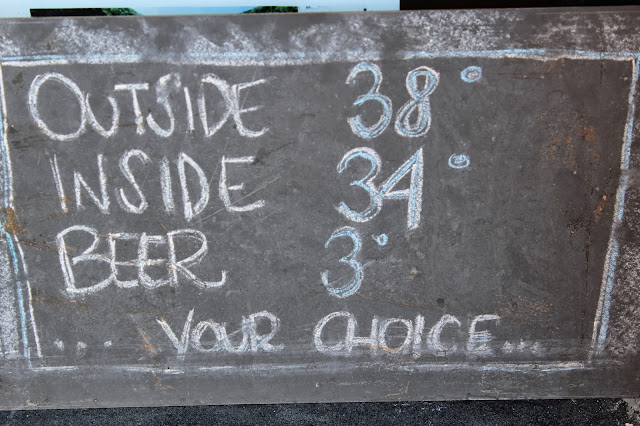 OUTSIDE 38°
INSIDE 34°
BEER 3°
... YOUR CHOICE...